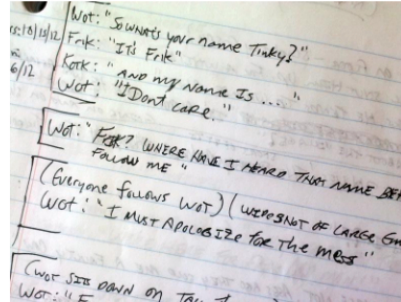 Wot: "So what's your name Tinky?"
10/11/12 Frik: "It's Frik"
6/12 Kotk: "and my name Is ... "
Wot: "I Dont care "
Wot: " Frik? WHERE HAVE I HEARD THAT NAME
Follow me "
(Everyone follows Wot) (
OF LARGE
Wot: "I Must Apologize for The mess"
(Wot sits down on
Wot: